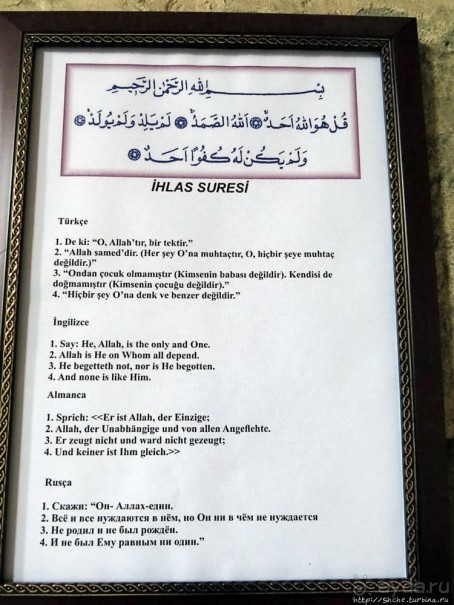 بِسْمِ اللهِ الرَّحْمٰنِ الرَّحِيمِ
قُلْ هُوَ اللهُ اَحَدٌ ۞ اَللهُ الصَّمَدُ ۞ لَمْ يَلِدْ وَلَمْ يُولَدْ ۞
وَلَمْ يَكُنْ لَهُ كُفُوًا اَحَدٌ ۞
İHLAS SURESİ
Türkçe
1. De ki: “O, Allah’tır, bir tektir.”
2. “Allah samed’dir. (Her şey O’na muhtaçtır, O, hiçbir şeye muhtaç
değildir.)”
3. “Ondan çocuk olmamıştır (Kimsenin babası değildir). Kendisi de
doğmamıştır (Kimsenin çocuğu değildir).”
4. “Hiçbir şey O’na denk ve benzer değildir.”
İngilizce
1. Say: He, Allah, is the only and One.
2. Allah is He on Whom all depend.
3. He begetteth not, nor is He begotten.
4. And none is like Him.
Almanca
1. Sprich: <<Er ist Allah, der Einzige;
2. Allah, der Unabhängige und von allen Angeflehte.
3. Er zeugt nicht und ward nicht gezeugt;
4. Und keiner ist Ihm gleich.>>
Rusça
1. Скажи: “Он- Аллах-един.
2. Всё и все нуждаются в нём, но Он ни в чём не нуждается
3. Не родил и не был рождён.
4. И не был Ему равным ни один.”
http://Shche.turbina.ru